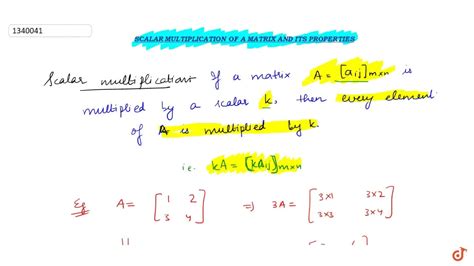 1340041
SCALAR MULTIPLICATION OF A MATRIX AND ITS PROPERTIES
Scalar multiplication If a matrix A = [aij]m×n is
multiplied by a scalar k, then every element
of A is multiplied by k.
i.e. kA = [kAij]m×n
Eg A = [1 2 3 4] ⇒ 3A = [3×1 3×2 3×3 3×4]